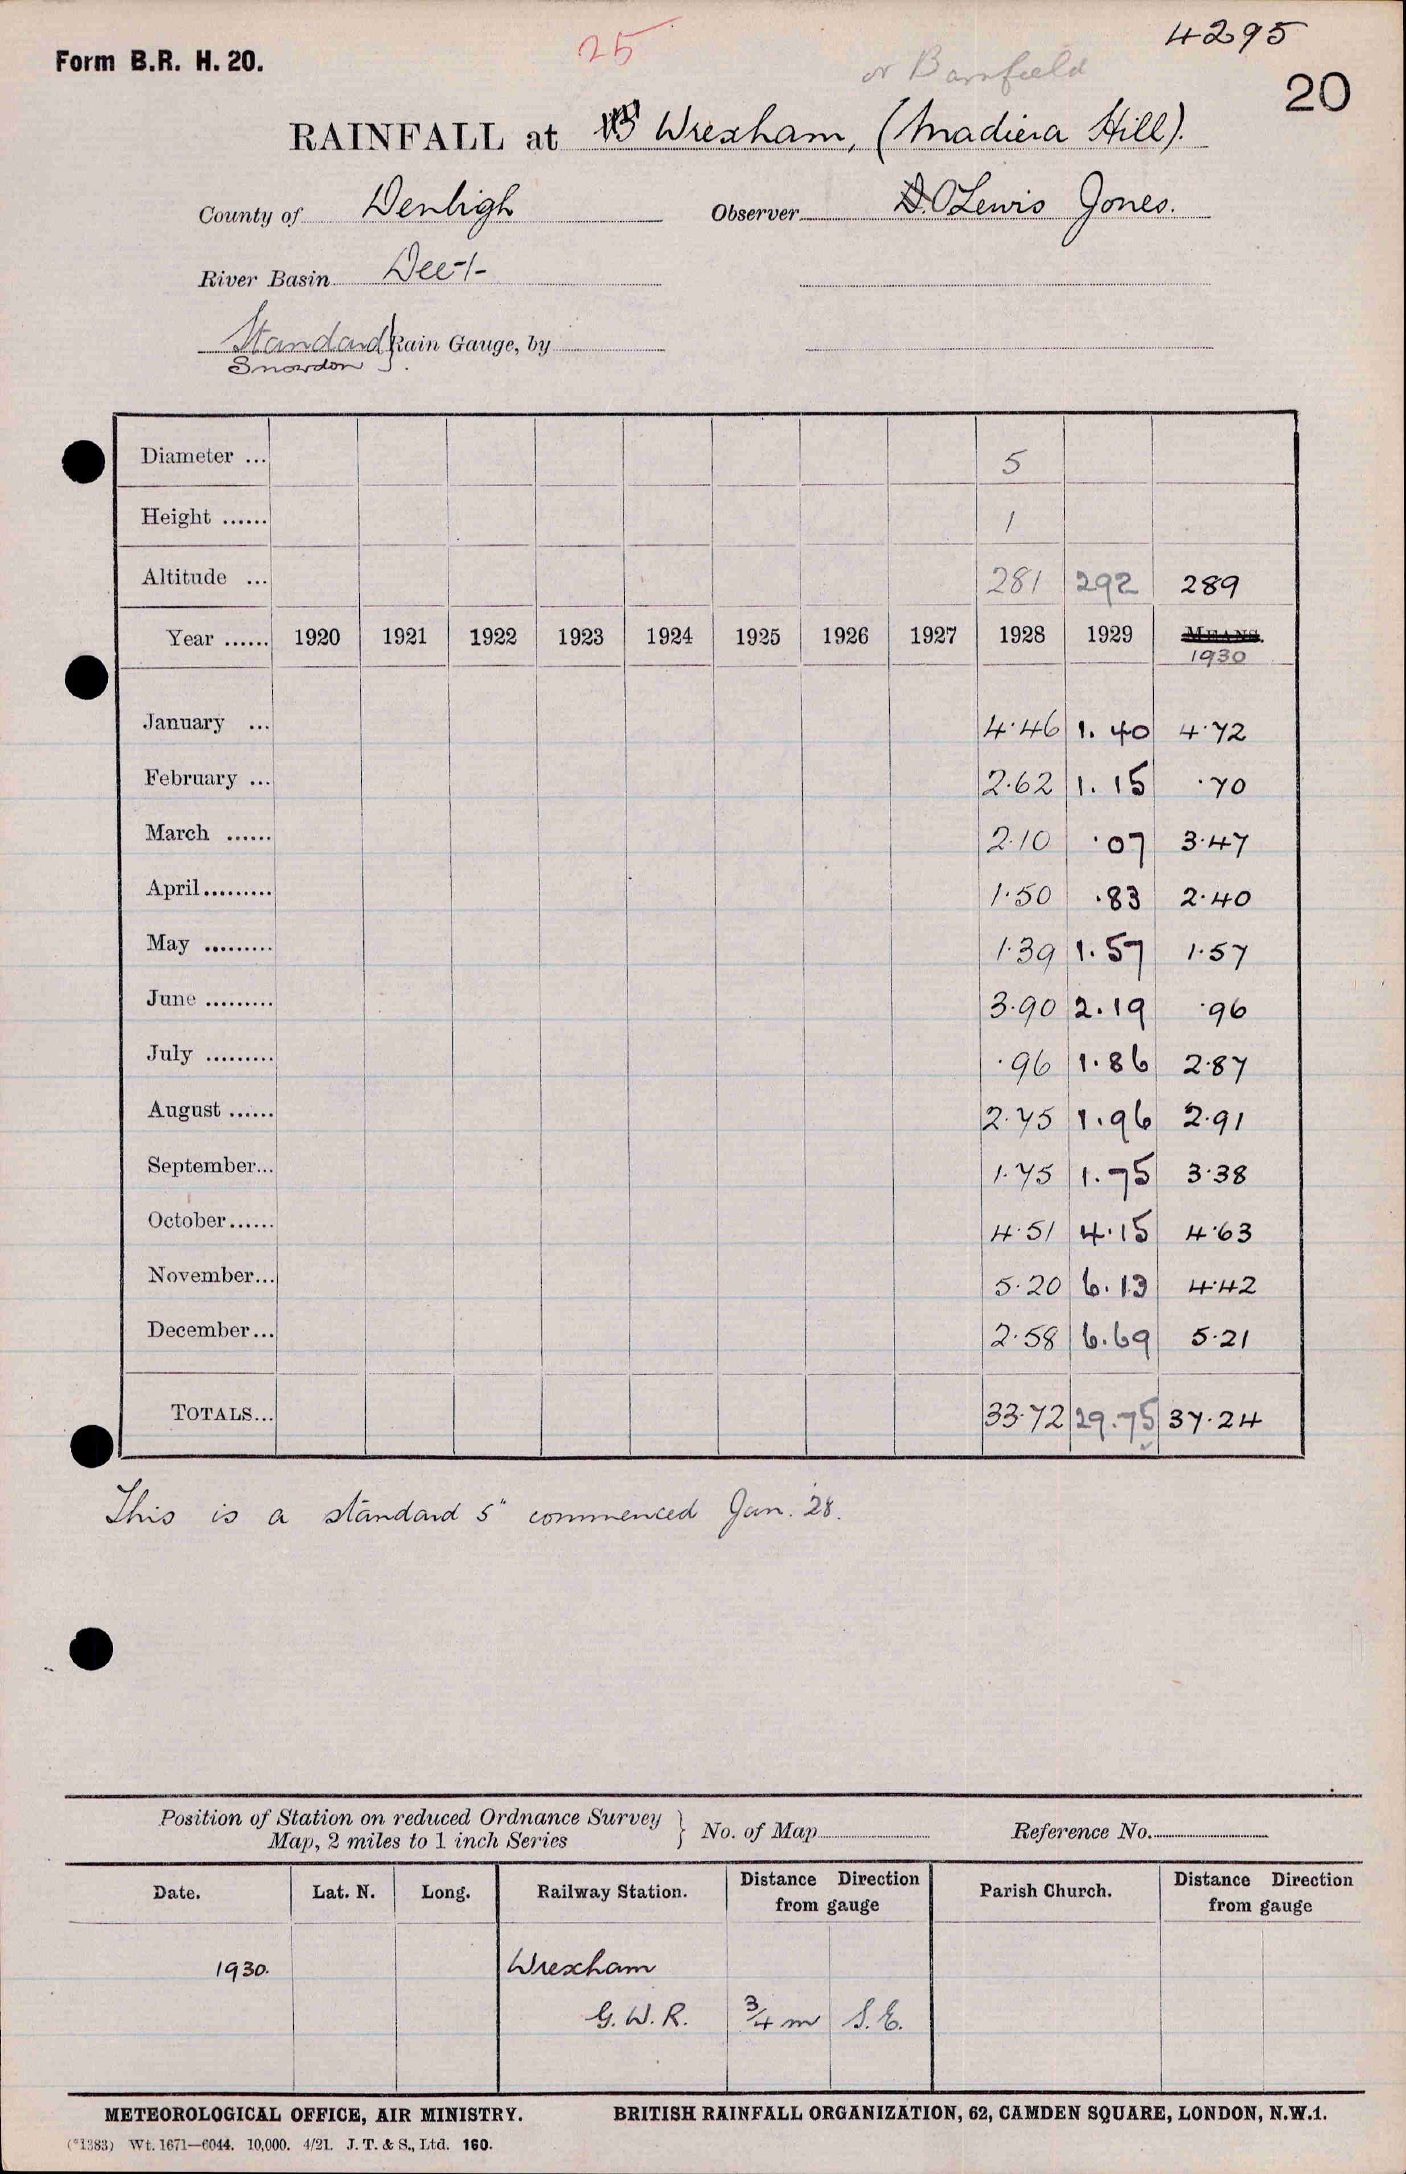 4295
25
Form B.R. H. 20.
or Barnfield
20
RAINFALL at Wrexham, (Madiera Hill).
County of Denbigh Observer O Lewis Jones.
River Basin Dee-1-
Standard } Rain Gauge, by
Snowdon
Diameter ... 5
Height ...... 1
Altitude ... 281 292 289
Year ...... 1920 1921 1922 1923 1924 1925 1926 1927 1928 1929 MEANS.
1930
January ... 4·46 1.40 4·72
February ... 2·62 1.15 ·70
March ...... 2·10 ·07 3·47
April......... 1·50 ·83 2·40
May ......... 1·39 1.57 1·57
June ......... 3·90 2.19 ·96
July ......... ·96 1·86 2·87
August ...... 2·75 1.96 2·91
September... 1·75 1.75 3·38
October...... 4·51 4·15 4·63
November... 5·20 6.13 4·42
December... 2·58 6.69 5·21
TOTALS... 33·72 29.75 37·24
This is a standard 5" commenced Jan. '28.
Position of Station on reduced Ordnance Survey
Map, 2 miles to 1 inch Series } No. of Map Reference No.
Date. Lat. N. Long. Railway Station. Distance Direction from gauge Parish Church. Distance Direction from gauge
1930. Wrexham
G.W.R. 3/4 m S.E.
METEOROLOGICAL OFFICE, AIR MINISTRY. BRITISH RAINFALL ORGANIZATION, 62, CAMDEN SQUARE, LONDON, N.W.1.
(*1383) Wt. 1671—6044. 10,000. 4/21. J. T. & S., Ltd. 160.